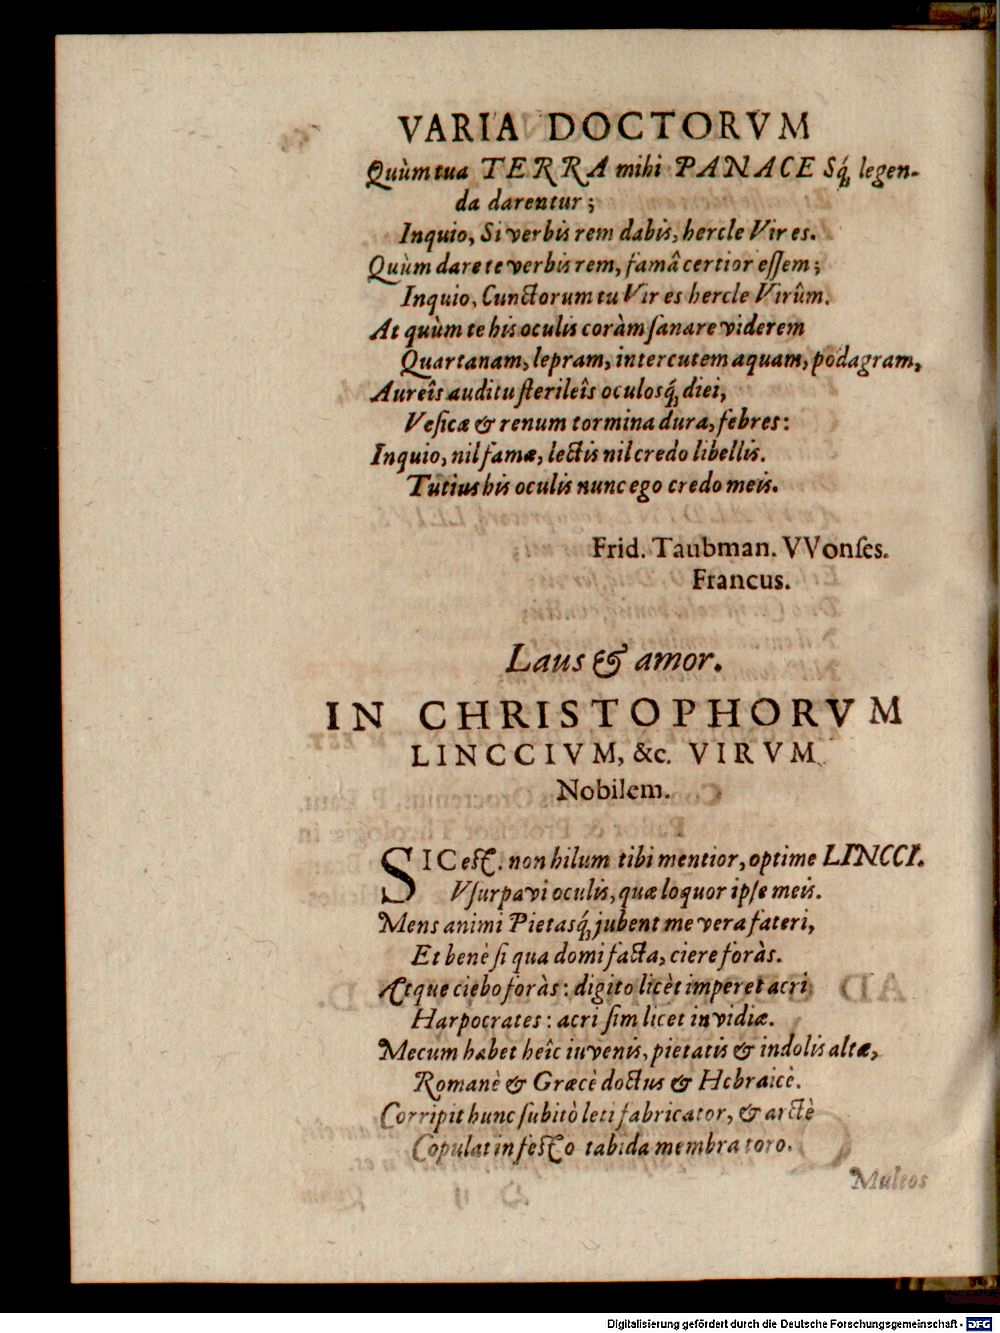 VARIA DOCTORVM
Quùm tua TERRA mihi PANACESq́; legen-
da darentur;
Inquio, Si verbis rem dabis, hercle Vir es.
Quùm dare te verbis rem, famâ certior essem;
Inquio, Cunctorum tu Vir es hercle Virûm.
At quùm te his oculis coràm sanare viderem
Quartanam, lepram, intercutem aquam, podagram,
Aureîs auditu sterileîs oculosq́; diei,
Vesicæ & renum tormina dura, febres:
Inquio, nil famæ, lectis nil credo libellis.
Tutius his oculis nunc ego credo meis.
Frid. Taubman. VVonses.
Francus.
Laus & amor.
IN CHRISTOPHORVM
LINCCIVM, &c. VIRVM
Nobilem.
SIC est. non hilum tibi mentior, optime LINCCI.
Vsurpavi oculis, quæ loquor ipse meis.
Mens animi Pietasq́; jubent me vera fateri,
Et benè si qua domi facta, ciere foràs.
Atque ciebo foràs: digito licèt imperet acri
Harpocrates: acri sim licet invidiæ.
Mecum habet heîc iuvenis, pietatis & indolis altæ,
Romanè & Græcè doctus & Hebraicè.
Corripit hunc subitò leti fabricator, & arctè
Copulat infesto tabida membra toro.
Multos
Digitalisierung gefördert durch die Deutsche Forschungsgemeinschaft - DFG